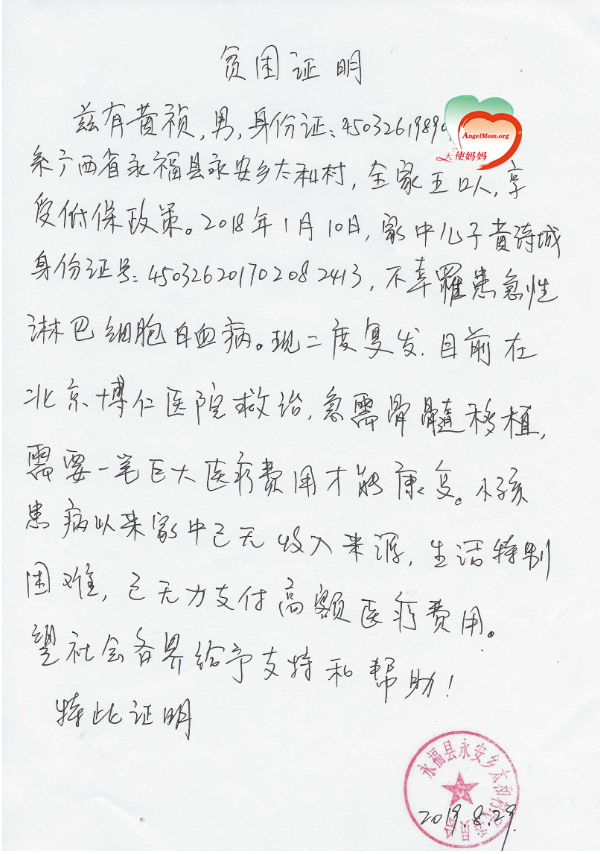 贫困证明
兹有黄祯,男,身份证:4503261989
AngelMom.org
天使妈妈
系广西省永福县永安乡太和村,全家五口人,享
受低保政策。2018年1月10日,家中儿子黄诗城
身份证号:450326201702082413,不幸罹患急性
淋巴细胞白血病。现二度复发.目前在
北京博仁医院救治,急需骨髓移植,
需要一笔巨大医疗费用才能康复。小孩
患病以来家中已无收入来源,生活特别
困难,已无力支付高额医疗费用。
望社会各界给予支持和帮助!
特此证明
永福县永安乡太和村 委员会
2019.8.29.